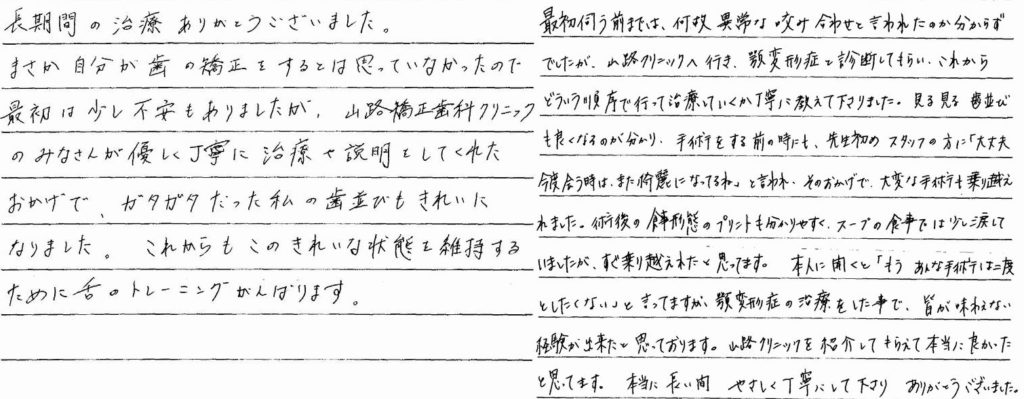 長期間の治療ありがとうございました。
まさか自分が歯の矯正をするとは思っていなかったので
最初は少し不安もありましたが、山路矯正歯科クリニック
のみなさんが優しく丁寧に治療や説明をしてくれた
おかげで、ガタガタだった私の歯並びもきれいに
なりました。これからもこのきれいな状態を維持する
ために舌のトレーニングがんばります。
最初伺う前までは、何故異常な咬み合わせと言われたのか分からず
でしたが、山路クリニックへ行き、顎変形症と診断してもらい、これから
どういう順序で行って治療していくか丁寧に教えて下さりました。見る見る歯並び
も良くなるのが分かり、手術をする前の時にも、先生初めスタッフの方に「大丈夫
今度会う時は、また綺麗になってるね」と言われ、そのおかげで、大変な手術も乗り越え
れました。術後の食事形態のプリントも分かりやすく、スープの食事では少し涙して
いましたが、すぐ乗り越えれたと思ってます。本人に聞くと「もうあんな手術は二度
としたくない」と言ってますが、顎変形症の治療をした事で、皆が味わえない
経験が出来たと思っております。山路クリニックを紹介してもらえて本当に良かった
と思ってます。本当に長い間やさしく丁寧にして下さりありがとうございました。